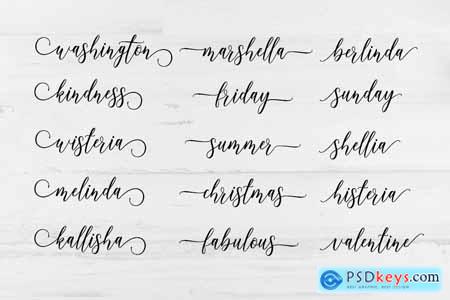 washington marshella berlinda
kindness friday sunday
wisteria summer shellia
melinda christmas histeria
kallisha fabulous valentine
PSDkeys.com